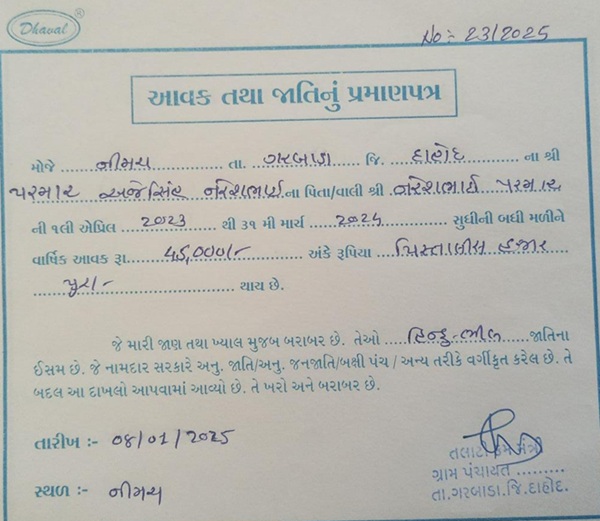 Dhaval
No:- 23/2025
આવક તથા જાતિનું પ્રમાણપત્ર
મોજે નીમચ તા. ગરબાડા જિ. દાહોદ ના શ્રી
પરમાર અજેસિંહ નરેશભાઈ ના પિતા/વાલી શ્રી નરેશભાઈ પરમાર
ની ૧લી એપ્રિલ ૨૦૨૩ થી ૩૧ મી માર્ચ ૨૦૨૪ સુધીની બધી મળીને
વાર્ષિક આવક રૂા. ૪૫,૦૦૦/- અંકે રૂપિયા પિસ્તાલીસ હજાર
પુરા/- થાય છે.
જે મારી જાણ તથા ખ્યાલ મુજબ બરાબર છે. તેઓ હિન્દુ-ભીલ જાતિના
ઈસમ છે. જે નામદાર સરકારે અનુ. જાતિ/અનુ. જનજાતિ/બક્ષી પંચ / અન્ય તરીકે વર્ગીકૃત કરેલ છે. તે
બદલ આ દાખલો આપવામાં આવ્યો છે. તે ખરો અને બરાબર છે.
તારીખ :- ૦૪/૦૧/૨૦૨૫
તલાટી કમ મંત્રી
ગ્રામ પંચાયત .........
સ્થળ :- નીમચ
તા.ગરબાડા.જિ.દાહોદ.